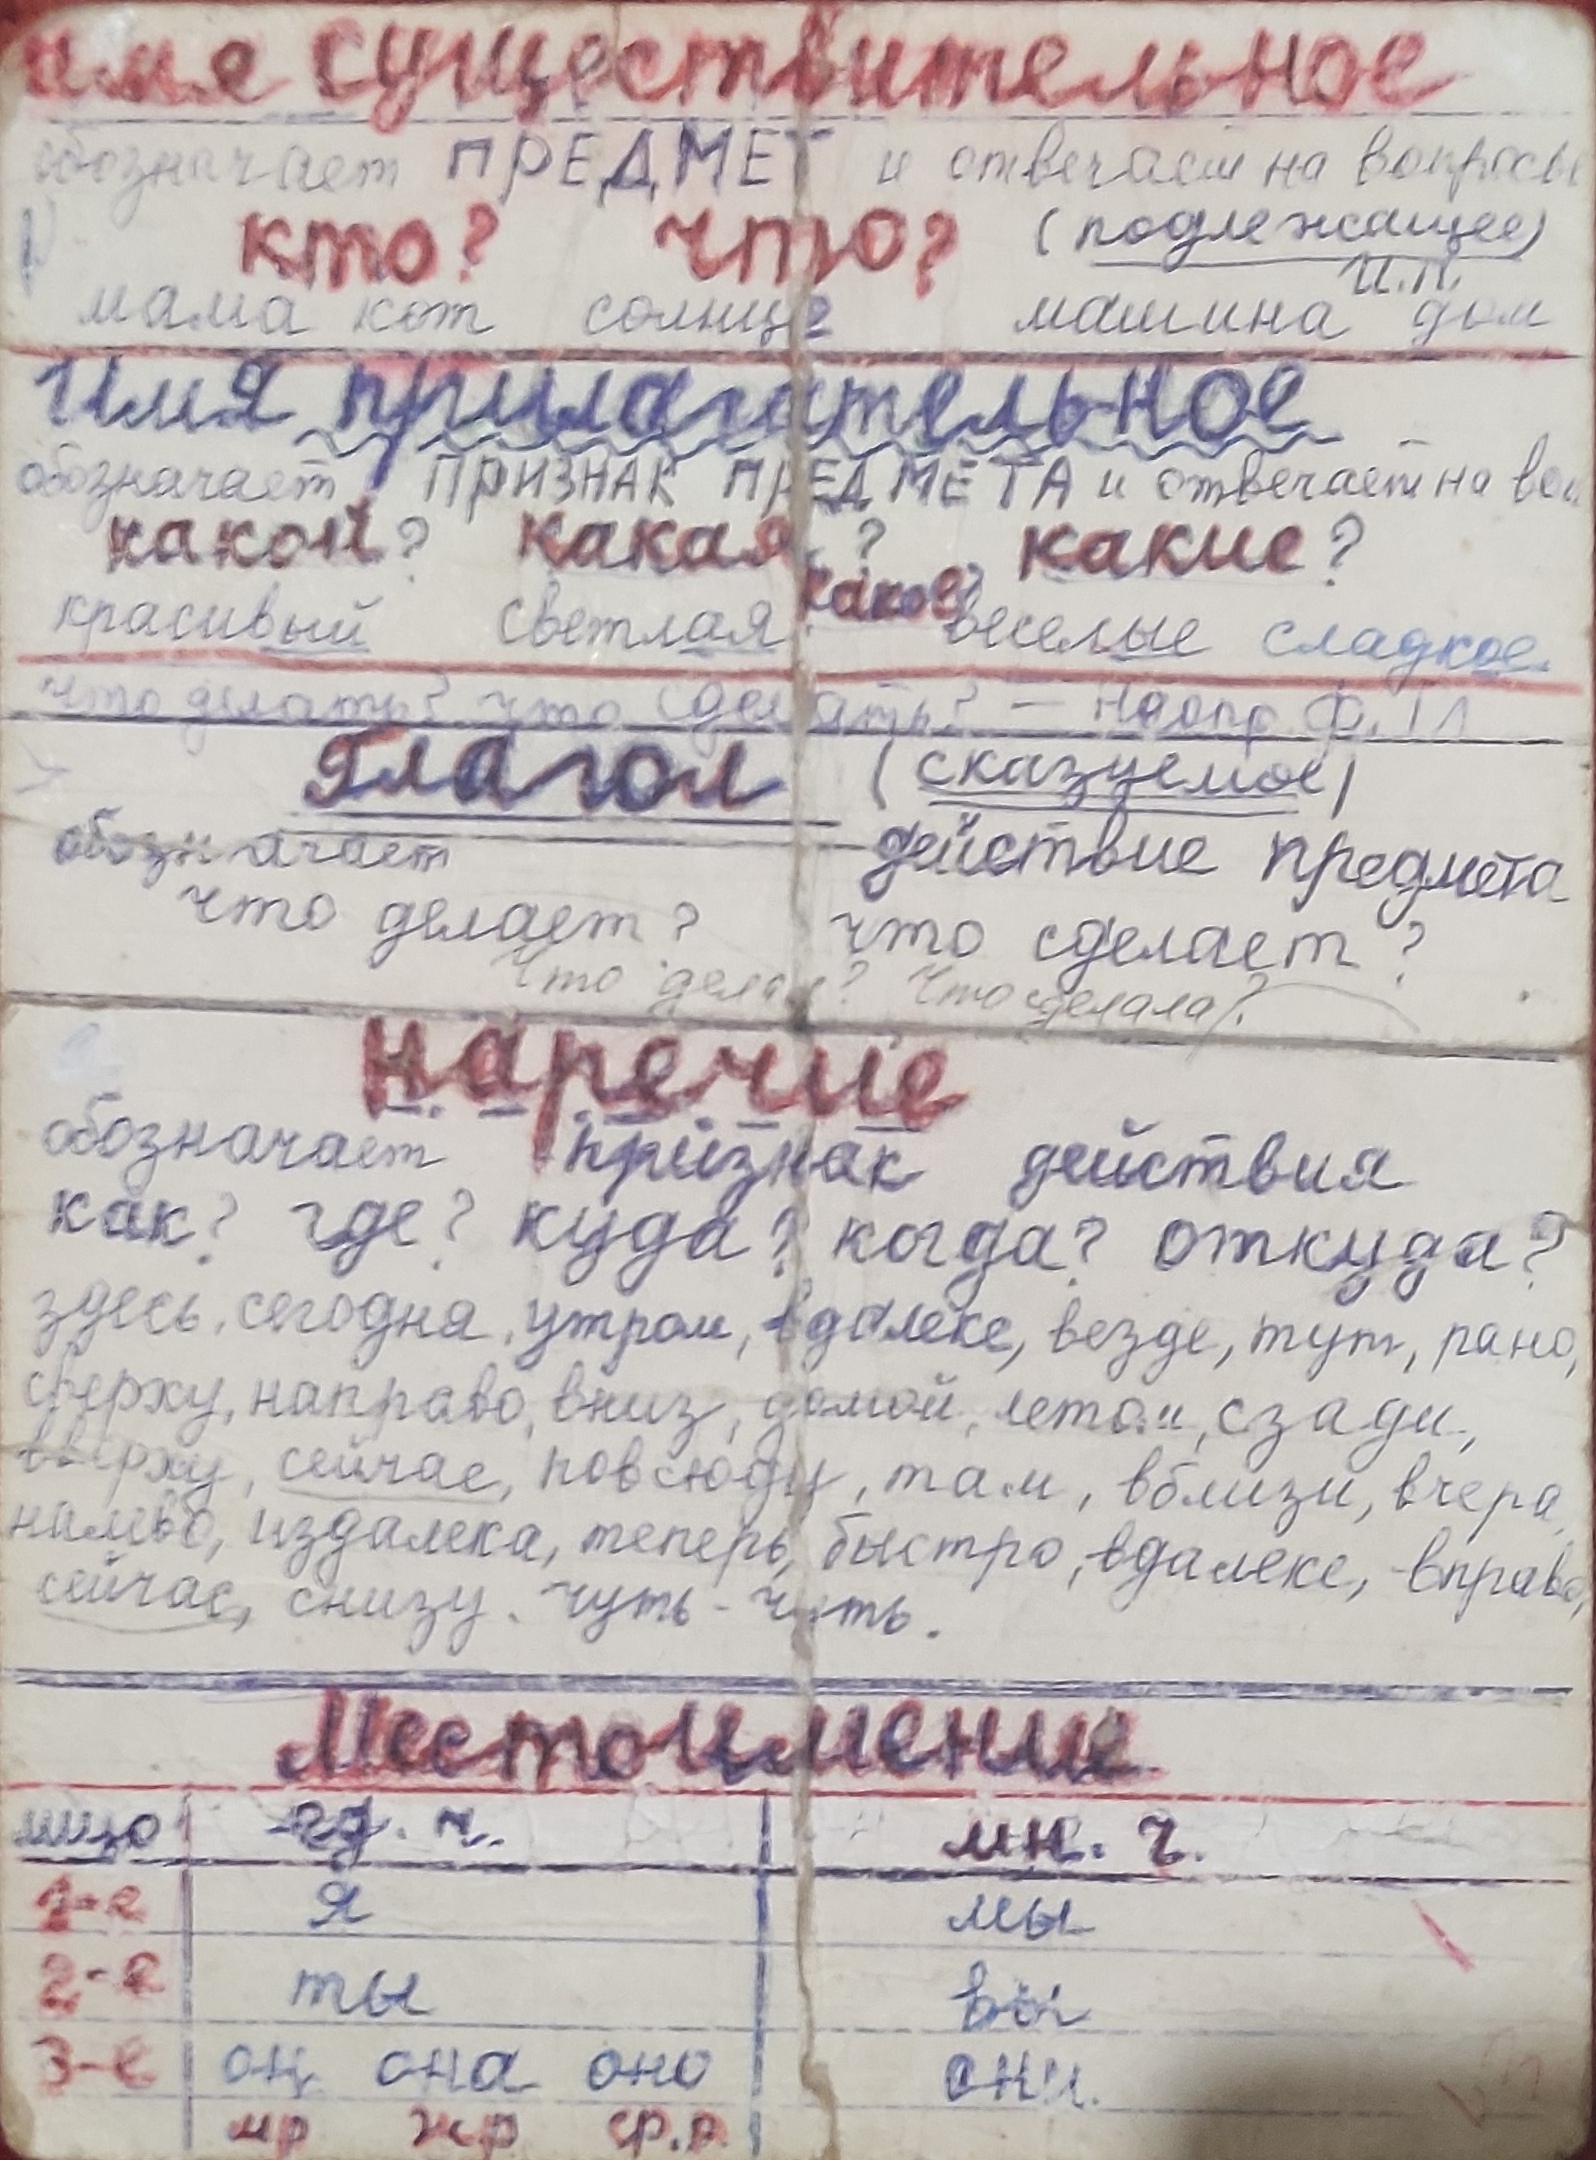 имя существительное
обозначает ПРЕДМЕТ и отвечает на вопросы
кто? что? (подлежащее)
И.П.
мама кот солнце машина дом
Имя прилагательное
обозначает ПРИЗНАК ПРЕДМЕТА и отвечает на воп
какой? какая? какие?
какое?
красивый светлая веселые сладкое.
что делать? что сделать? — Неопр ф. гл
Глагол (сказуемое)
обозначает действие предмета
что делает? что сделает?
Что делал? Что сделала?
наречие
обозначает признак действия
как? где? куда? когда? откуда?
здесь, сегодня, утром, вдалеке, везде, тут, рано,
сверху, направо, вниз, домой, летом, сзади,
вверху, сейчас, повсюду, там, вблизи, вчера,
налево, издалека, теперь, быстро, вдалеке, вправо,
сейчас, снизу. чуть-чуть.
Местоимение
лицо ед. ч. мн. ч.
1-е я мы
2-е ты вы
3-е он она оно они.
мр жр ср.р.